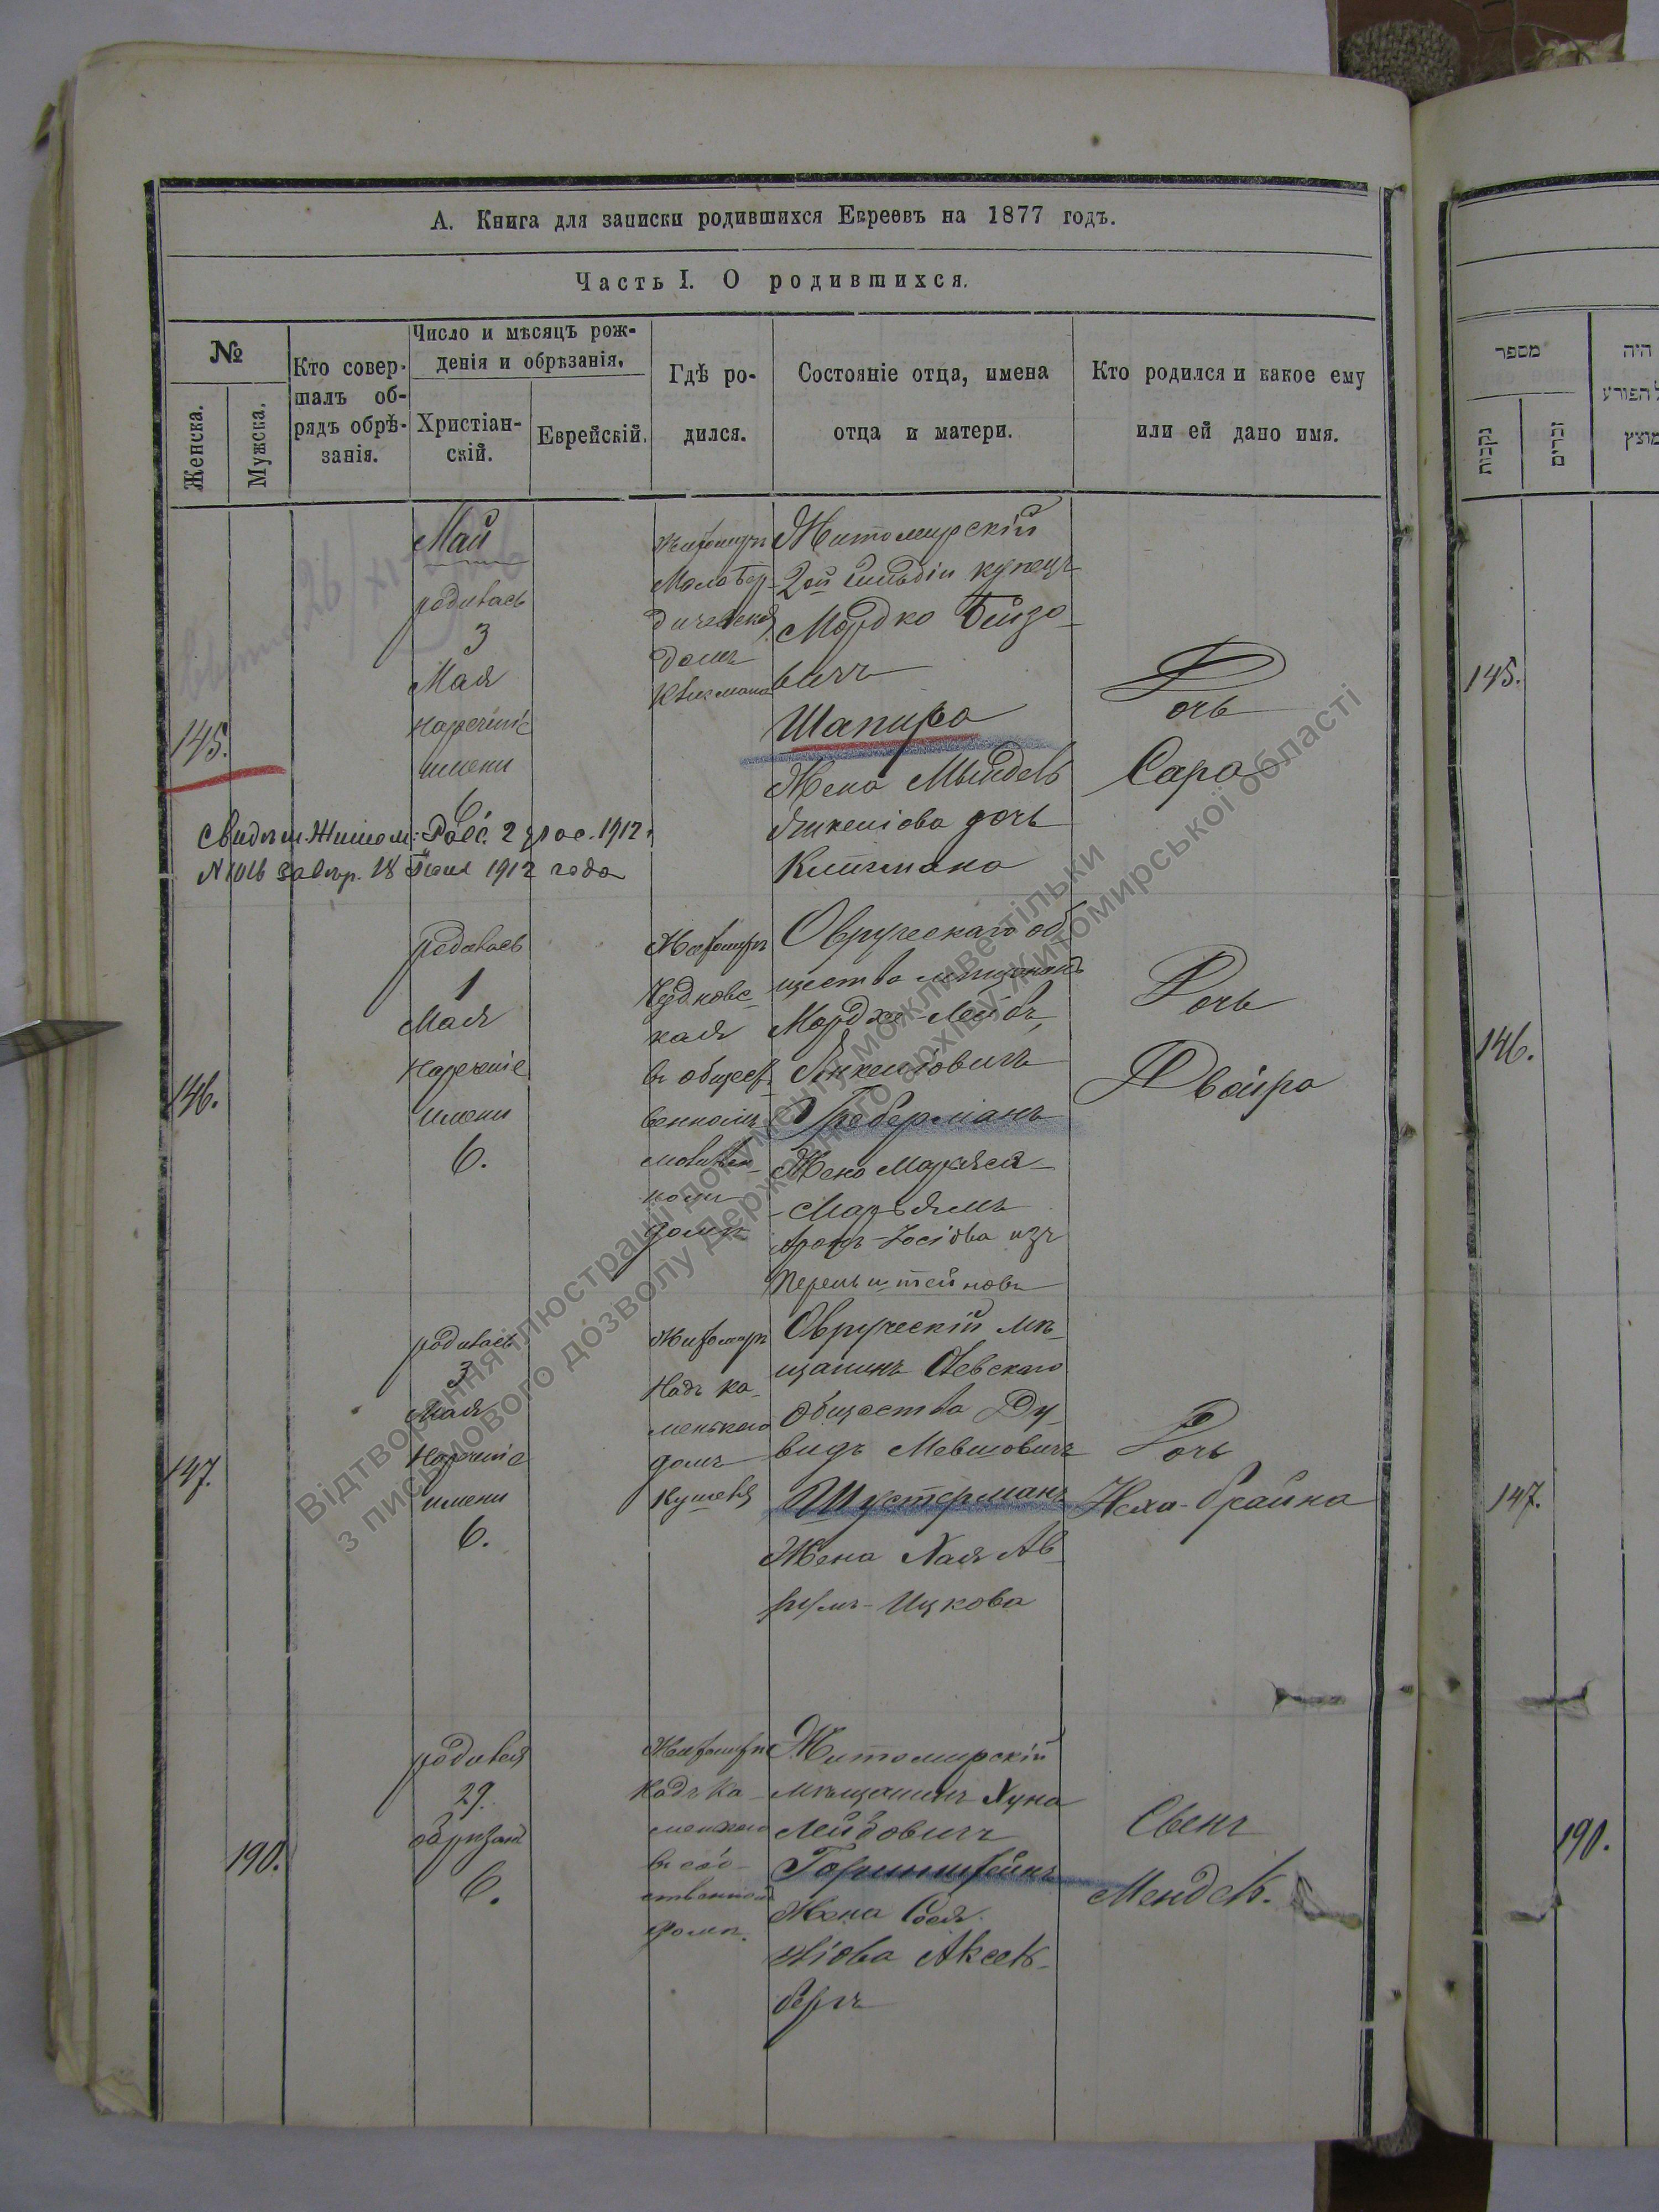 А. Книга для записки родившихся Евреевъ на 1877 годъ.
Часть I. О родившихся.
№
Женска.
Мужска.
Кто совер-
шалъ об-
рядъ обрѣ-
занія.
Число и мѣсяцъ рож-
денія и обрѣзанія.
Христіан-
скій.
Еврейскій.
Гдѣ ро-
дился.
Состояніе отца, имена
отца и матери.
Кто родился и какое ему
или ей дано имя.
מספר
נקבות
זכרים
היה
הפורע
מוצץ
145.
Май
родилась
3
Мая
нареченіе
имени
6.
Житомиръ
Мало Бер-
дичевская
домъ
Житомирскій
2ой гильдіи купецъ
Мордко Бейзо-
вичъ
Шапиро
Жена Мындель
дочь
Дочь
Сара
145.
1912
18 1912 года
146.
родилась
1
Мая
нареченіе
имени
6.
Житомиръ
Чудновс-
кая
въ общест-
венномъ
домѣ
Овручскаго об-
щества мѣщанинъ
Мордхе-Лейбъ
Янкелiовичъ
Греберманъ
Жена
Марьямъ
Аронъ-Іосіова изъ
Перельштейновъ
Дочь
Двойра
146.
147.
родилась
3
Мая
нареченіе
имени
6.
Житомиръ
Надъ ка-
менькою
домъ
Овручскій мѣ-
щанинъ Олевскаго
общества Ду-
видъ Мевшовичъ
Шустерманъ
Жена Хая Аб-
румъ-Ицкова
Дочь
Неха-брайна
147.
190.
родился
29.
обрѣзанъ
6.
Житомиръ
надъ Ка-
менкою
въ соб-
ственномъ
домѣ.
Житомирскій
мѣщанинъ Хуна
Лейбовичъ
Горинштейнъ
Жена Сося
Аксель-
бергъ
Сынъ
Мендель.
190.
Відтворення ілюстрації документу можливе тільки
з письмового дозволу Державного архіву Житомирської області